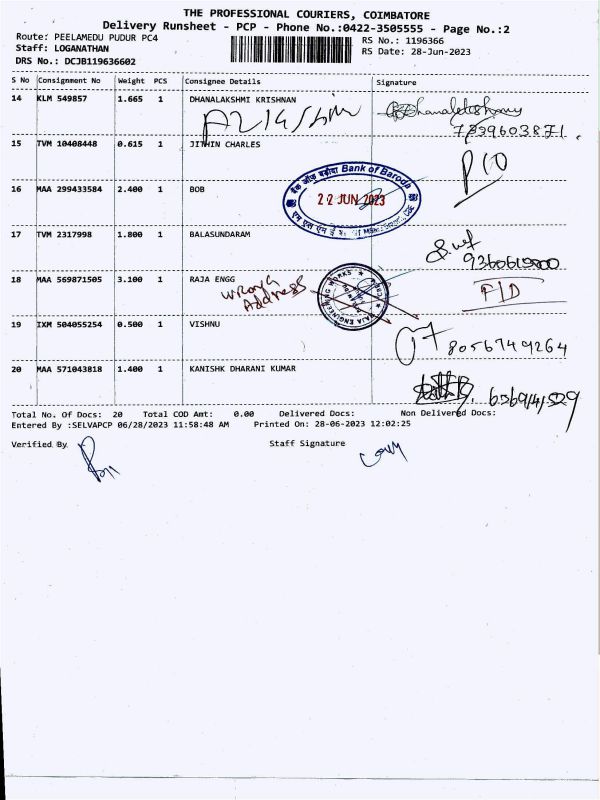 THE PROFESSIONAL COURIERS, COIMBATORE
Delivery Runsheet - PCP - Phone No.:0422-3505555 - Page No.:2
Route: PEELAMEDU PUDUR PC4
RS No.: 1196366
Staff: LOGANATHAN
RS Date: 28-Jun-2023
DRS No.: DCJB119636602
S No Consignment No Weight PCS Consignee Details Signature
14 KLM 549857 1.665 1 DHANALAKSHMI KRISHNAN
7339603871.
15 TVM 10408448 0.615 1 JITHIN CHARLES
16 MAA 299433584 2.400 1 BOB
बैंक ऑफ़ बड़ौदा Bank of Baroda
22 JUN 2023
17 TVM 2317998 1.800 1 BALASUNDARAM
18 MAA 569871505 3.100 1 RAJA ENGG
wrong
Address
RAJA ENGINEERING WORKS
P/D
19 IXM 504055254 0.500 1 VISHNU
8056749264
20 MAA 571043818 1.400 1 KANISHK DHARANI KUMAR
Total No. Of Docs: 20 Total COD Amt: 0.00 Delivered Docs: Non Delivered Docs:
Entered By :SELVAPCP 06/28/2023 11:58:48 AM Printed On: 28-06-2023 12:02:25
Verified By
Staff Signature